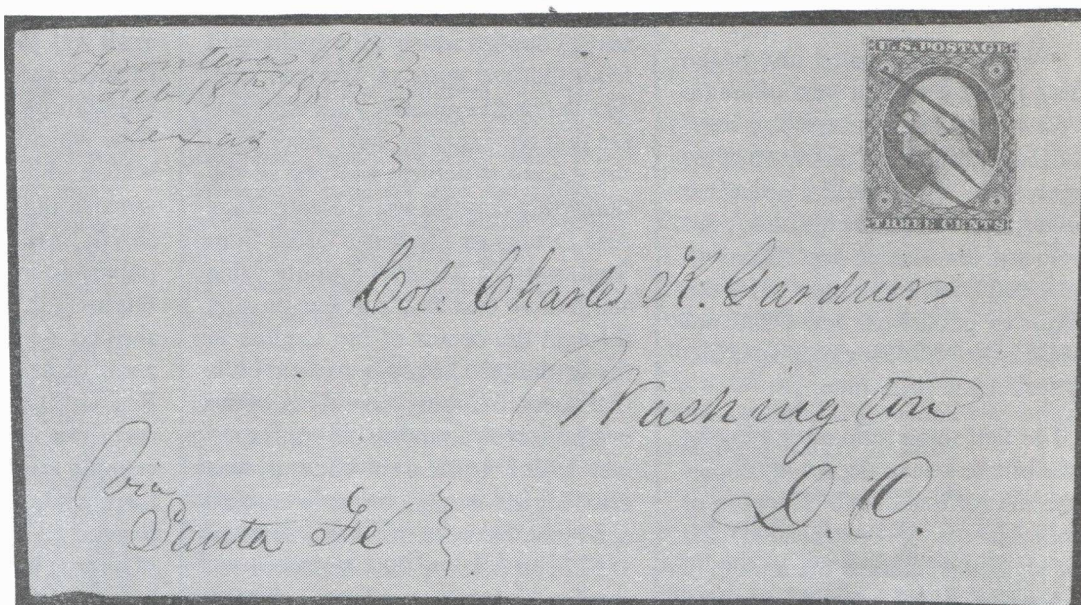 Frontera P.O.
Feb 18th /852
Texas
U.S. POSTAGE
THREE CENTS
Col: Charles K. Gardner
Washington
D.C.
Via
Santa Fé